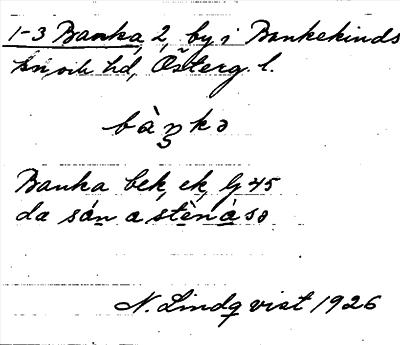 1-3 Banka, 2, by i Bankekinds
sn och hd, Österg. l.
bàŋkə
Banka bek, ek, G 45
da sán a stènáso
N. Lindqvist 1926